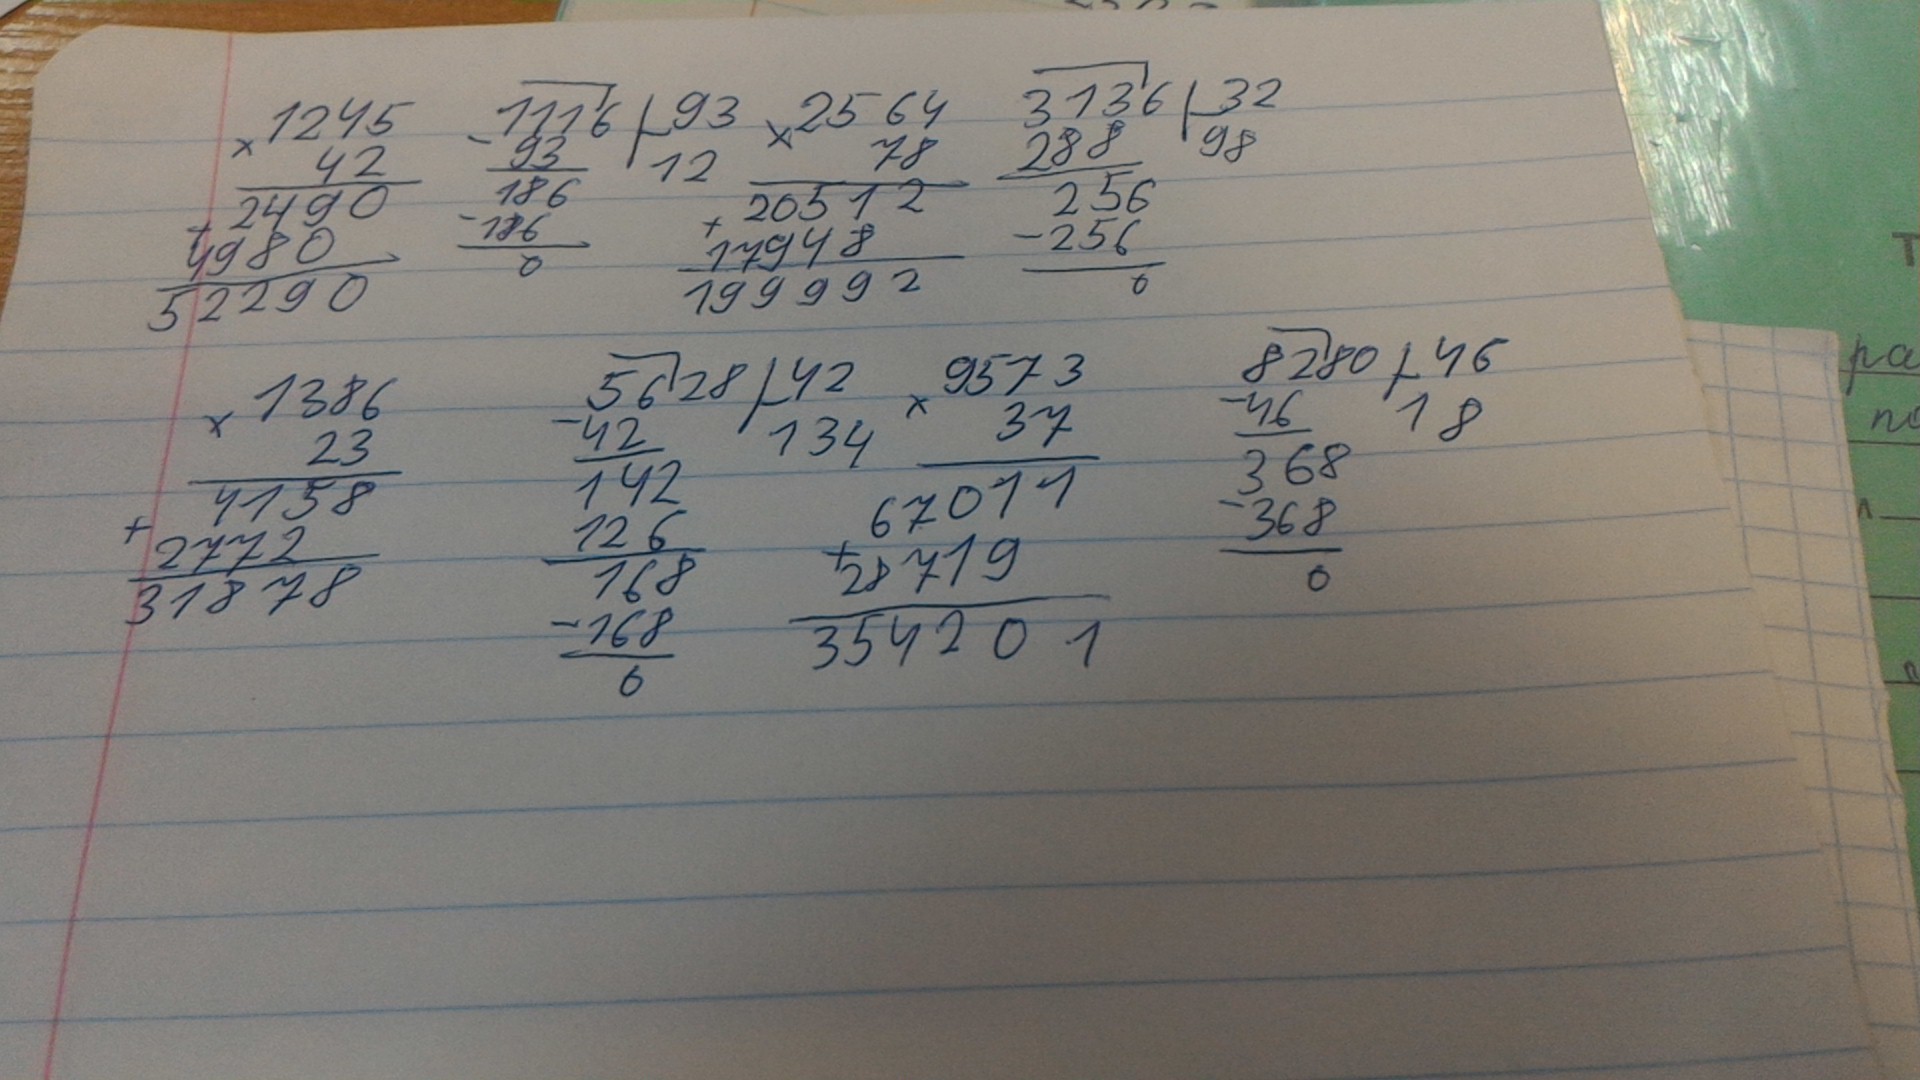 1245 1116 93 2564 3136 32
× 42 - 93 12 × 78 288 98
2490 186 20512 256
+ 4980 - 186 + 17948 - 256
52290 0 199992 0
1386 5628 42 9573 8280 46
× 23 - 42 134 × 37 - 46 18
4158 142 67011 368
+ 2772 126 + 28719 - 368
31878 168 354201 0
- 168
0